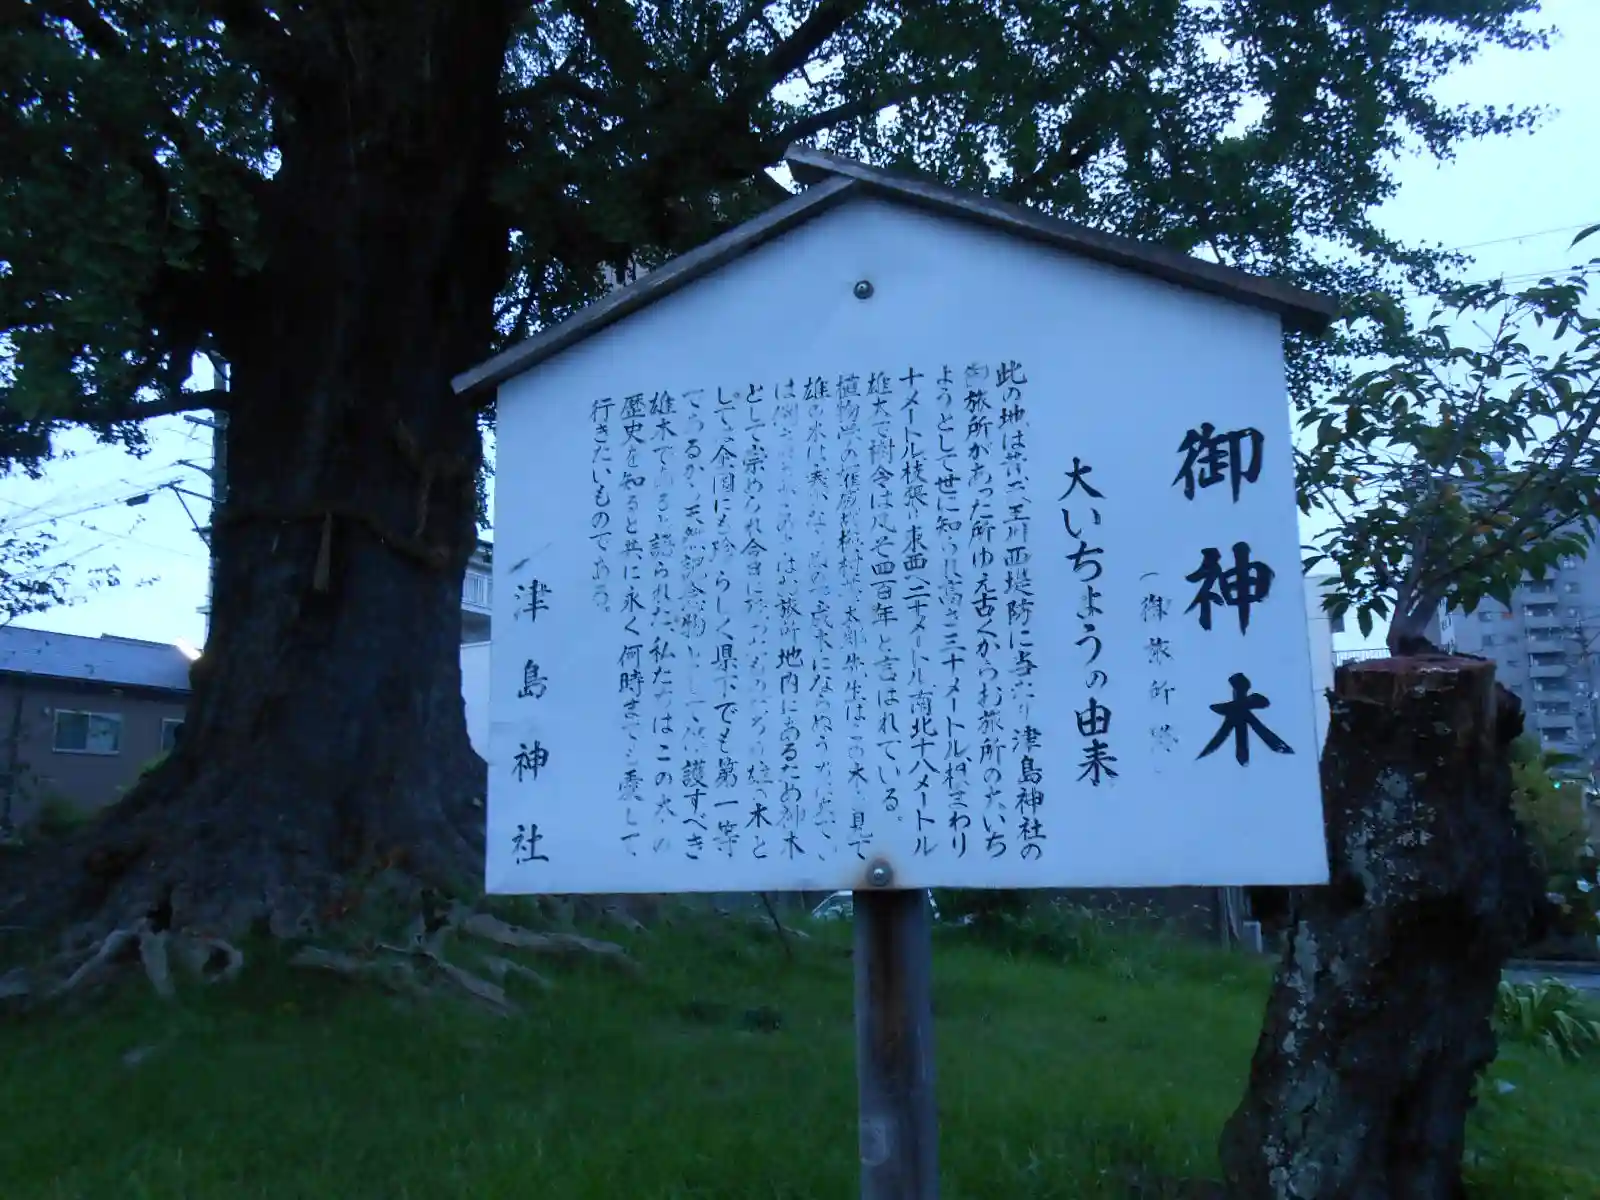 御神木
(御旅所跡)
大いちょうの由来
此の地は昔天王川西堤防に当たり津島神社の
御旅所があった所ゆえ古くからお旅所の大いち
ようとして世に知られ高さ三十メートル、根まわり
十メートル枝張り東西へ二十メートル南北十八メートル
雄大で樹令は凡そ四百年と言はれている。
植物学の権威 博士 先生はこの木を見て
雄の木は
は お旅所 地内にあるため神木
として崇められ今日に 雄の木と
して全国にも珍らしく県下でも第一等
であるから天然記念物として保護すべき
雄木であると語られた。私たちはこの大木の
歴史を知ると共に永く何時までも愛して
行きたいものである。
津島神社